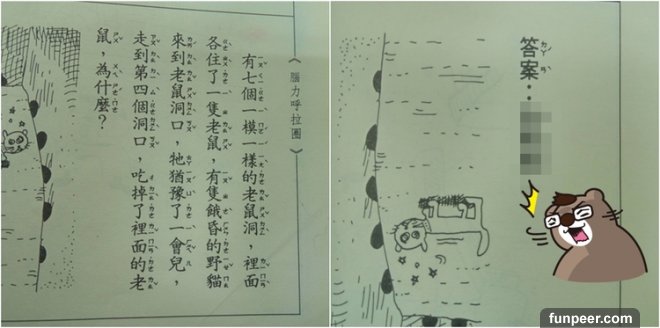 《腦力呼拉圈》
有七個一模一樣的老鼠洞，裡面
各住了一隻老鼠，有隻餓昏的野貓
來到老鼠洞口，牠猶豫了一會兒，
走到第四個洞口，吃掉了裡面的老
鼠，為什麼？
答案：
funpeer.com